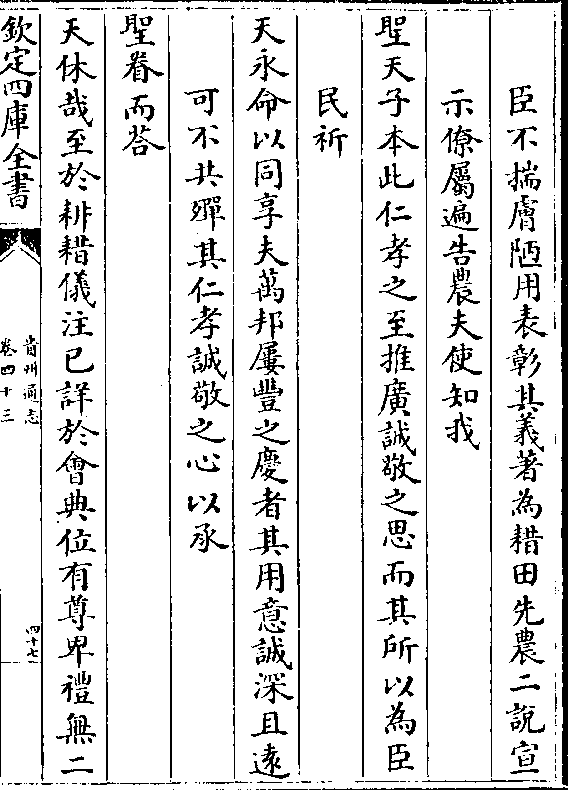 臣不揣膚陋用表彰其義著為耤田先農二說宣
示僚屬遍告農夫使知我
聖天子本此仁孝之至推廣誠敬之思而其所以為臣
民祈
天永命以同享夫萬邦屢豐之慶者其用意誠深且遠
可不共殫其仁孝誠敬之心以承
聖眷而荅
天休哉至於耕耤儀注已詳於會典位有尊卑禮無二
欽定四庫全書
貴州通志
卷四十三
四十七